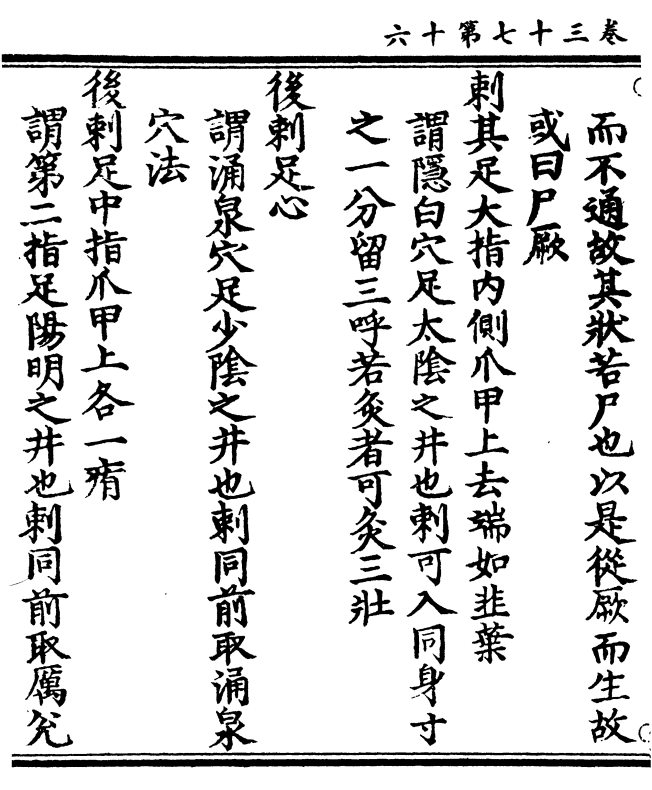 卷三十七第十六
而不通故其狀若尸也以是從厥而生故
或曰尸厥
刺其足大指内側爪甲上去端如韭葉
謂隱白穴足太陰之井也刺可入同身寸
之一分留三呼若灸者可灸三壯
後刺足心
謂涌泉穴足少陰之井也刺同前取涌泉
穴法
後刺足中指爪甲上各一痏
謂第二指足陽明之井也刺同前取厲兊